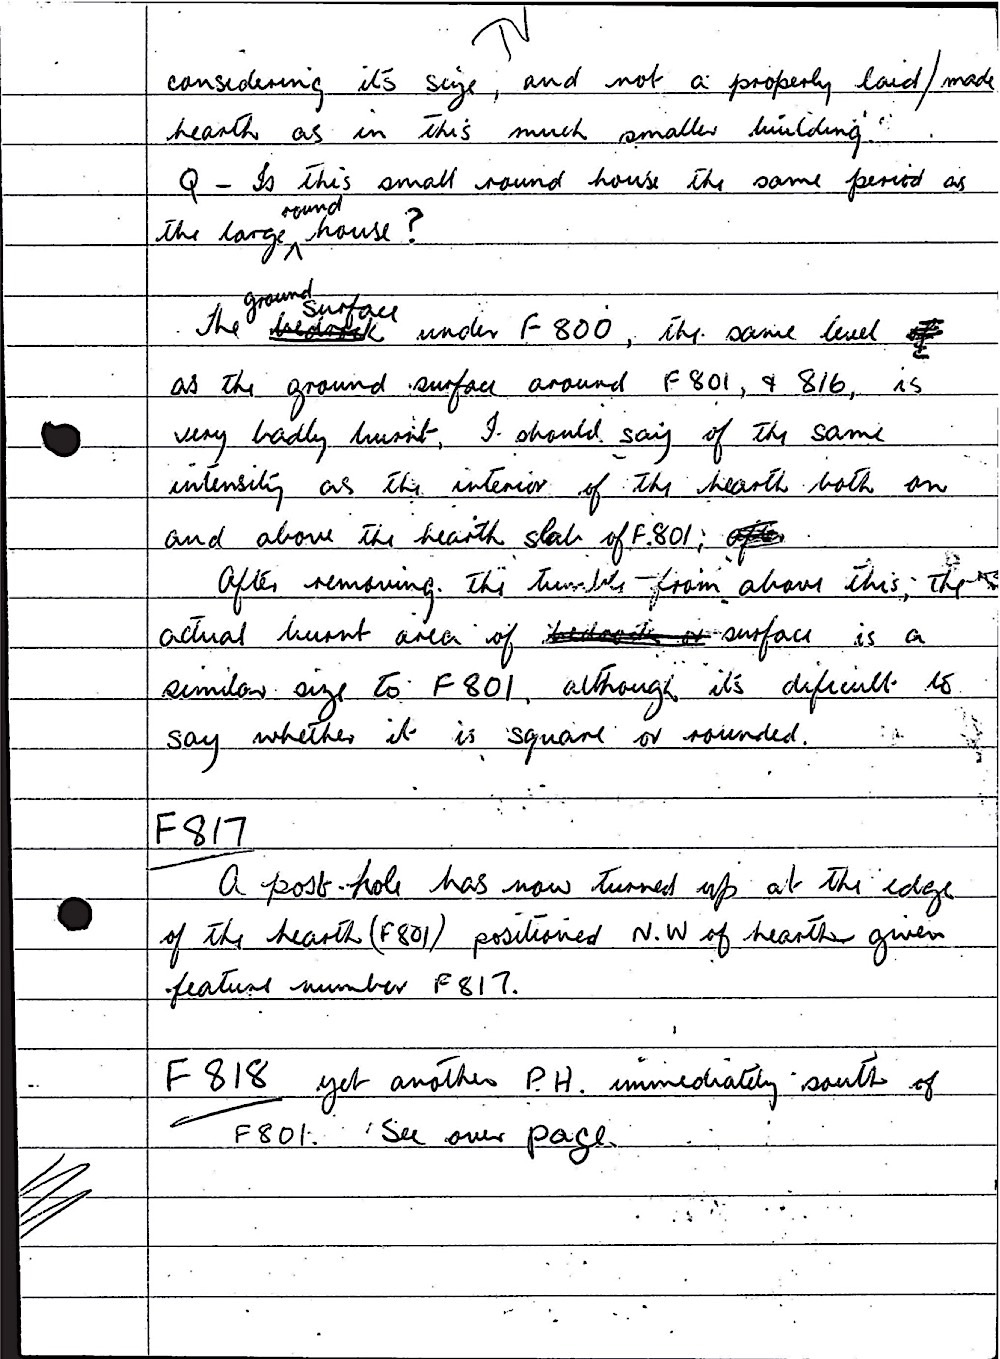 IV
considering it's size, and not a properly laid/made
hearth as in this much smaller building".
Q - Is this small round house the same period as
the large round house?
The ground surface under F 800, the same level
as the ground surface around F801, & 816, is
very badly burnt, I should say of the same
intensity as the interior of the hearth both on
and above the hearth slab of F.801;
After removing the tumble from above this, the
actual burnt area of surface is a
similar size to F801, although it's dificult to
say whether it is square or rounded.
F817
A post-hole has now turned up at the edge
of the hearth (F801) positioned N.W of hearth given
feature number F817.
F 818 yet another P.H. immediately south of
F801. See over page.